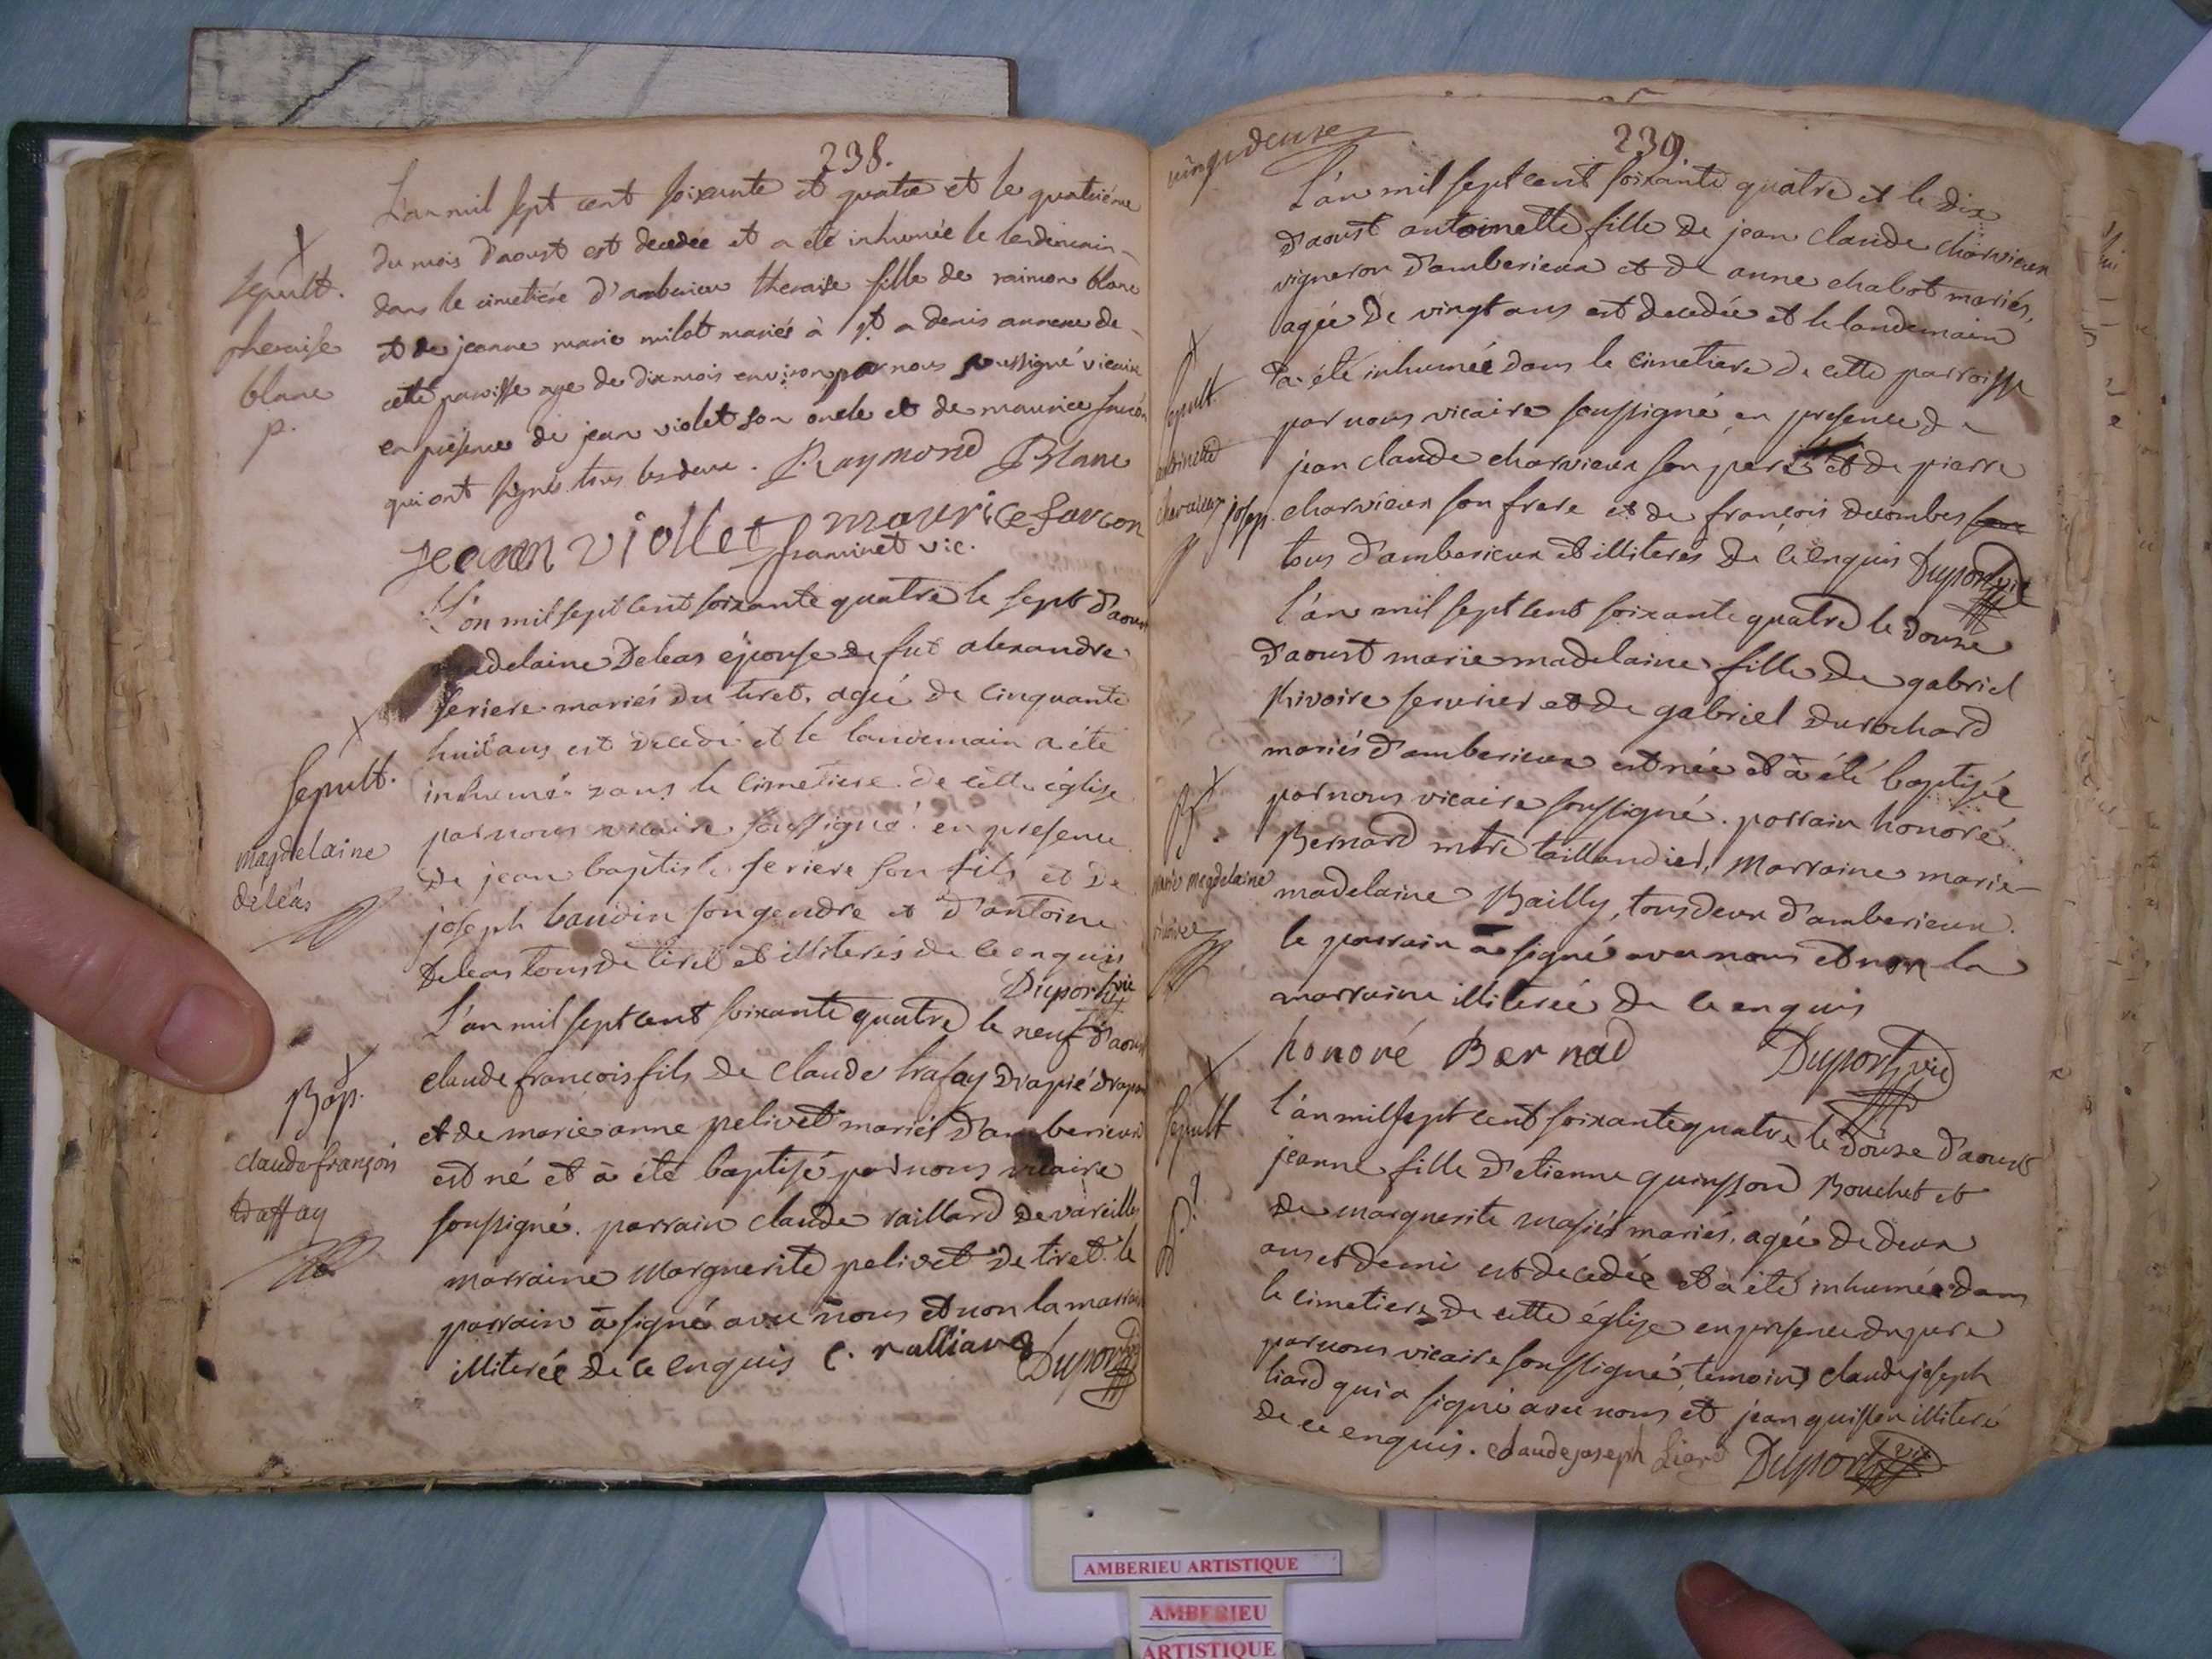 238.
L'an mil sept cent soixante et quatre et le quatrième
du mois d'aoust est decedée et a été inhumée le lendemain
dans le cimetière d'amberieu theraise fille de raimon blanc
et de jeanne marie milot mariés à st denis annexe de
cette paroisse age de dix mois environ par nous soussigné vicaire
en présence de jean violet son oncle et de maurice
qui ont signés tous les deux. Raymond Blanc
jeaan viollet maurice sarcon
vic.
X
sepult.
theraise
blanc
p.
L'an mil sept cent soixante quatre le sept d'aoust
madelaine Deleas épouse de fut alexandre
feriere mariés du tiret. agée de cinquante
huit ans est decedé et le landemain a été
inhumé dans le cimetiere de cette église
par nous vicaire soussigné en presence
de jean baptiste feriere son fils et de
joseph baudin son gendre et d'antoine
Deleas tous de tiret et illiterés de ce enquis
Duport vic
X
sepult.
magdelaine
déléas
L'an mil sept cent soixante quatre le neuf d'aoust
claude françois fils de claude trafay
et de marie anne pelivet mariés d'amberieux
est né et à été baptisé par nous vicaire
soussigné. parrain claude raillard de vareilles
marraine Marguerite pelivet de tiret. le
parrain à signé avec nous et non la marraine
illiterée de ce enquis c. ralliard Duport
X
Bap.
claude françois
traffay
vingt deuxe
239.
L'an mil sept cent soixante quatre et le dix
d'aoust antoinette fille de jean claude charvieux
vigneron d'amberieux et de anne chabot mariés,
agée de vingt ans est decedée et le landemain
a été inhumée dans le cimetiere de cette parroisse
par nous vicaire soussigné en presence de
jean claude charvieux son pere et de pierre
josep. charvieux son frere et de françois decombes
tous d'amberieux et illiterés de ce enquis Duport vic
X
sepult
antoinette
charvieux
L'an mil sept cent soixante quatre le douze
d'aoust marie madelaine fille de gabriel
rivoire serurier et de gabriel durochard
mariés d'amberieux est née et à été baptisée
par nous vicaire soussigné. parrain honoré
Bernard mtre taillandier, Marraine marie
madelaine Bailly, tous deux d'amberieux.
le parrain à signé avec nous et non la
marraine illiterée de ce enquis
honoré Bernad Duport vic
X
B.
marie magdelaine
rivoire
L'an mil sept cent soixante quatre le douze d'aoust
jeanne fille d'etienne quinsson Bouchet et
de marguerite mariés, agée de deux
ans et demi est decedée et a été inhumée dans
le cimetiere de cette église en presence du pere
par nous vicaire soussigné, temoins claude joseph
liard qui a signé avec nous et jean quisson illiteré
de ce enquis. claude joseph Liard Duport vic
X
sepult
AMBERIEU ARTISTIQUE
AMBERIEU
ARTISTIQUE